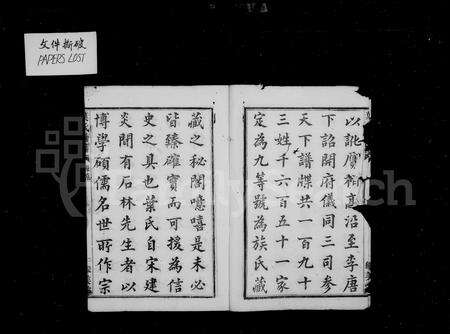 文件撕破
PAPERS LOST
以訛贋沿至李唐
下詔開府儀同三司參
天下譜牒共一百九十
三姓千六百五十一家
定為九等號為族氏藏
藏之秘閣噫嘻是未必
皆臻確實而可援為信
史之具也葉氏自宋建
炎間有石林先生者以
博學碩儒名世所作宗